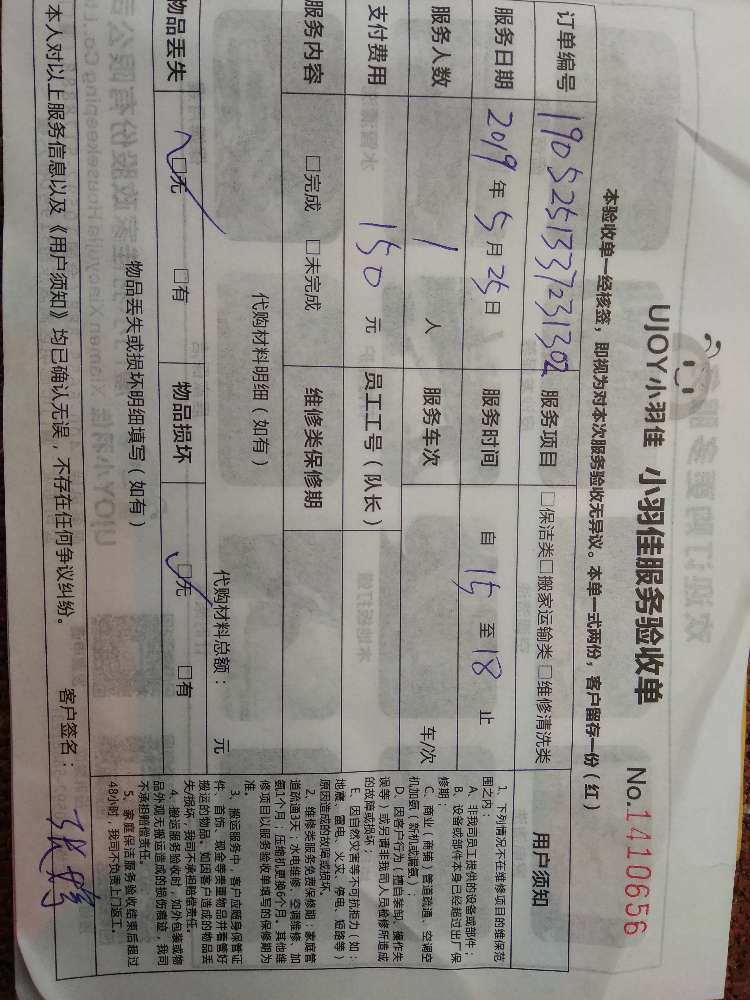 UJOY小羽佳 小羽佳服务验收单 No.1410656
本验收单一经核签，即视为对本次服务验收无异议。本单一式两份，客户留存一份（红）
订单编号 190525133723130 服务项目 □保洁类□搬家运输类□维修清洗类
服务日期 2019年5月25日 服务时间 自15至18止
服务人数 1人 服务车次 车/次
支付费用 150元 员工工号（队长）
服务内容 □完成 □未完成 维修类保修期
代购材料明细（如有） 代购材料总额： 元
物品丢失 □无 □有 物品损坏 □无 □有
物品丢失或损坏明细填写（如有）
本人对以上服务信息以及《用户须知》均已确认无误，不存在任何争议纠纷。 客户签名：张鹏
用户须知
1、下列情况不在维修项目的维保范
围之内：
A、非我司员工提供的设备或部件；
B、设备或部件本身已经超过出厂保
修期；
C、商业（商铺）管道疏通、空调空
机加氨（新机或漏氨）；
D、因客户行为（擅自装卸、操作失
误等）或另请非我司人员检修所造成
的故障或损坏；
E、因自然灾害等不可抗拒力（如：
地震、雷电、火灾、停电、短路等）
原因造成的故障或损坏。
2、维修类服务免费保修期：家庭管
道疏通3天；水电维修、空调维修、加
氨1个月；压缩机更换6个月。其他维
修项目以服务验收单填写的保修期为
准。
3、搬运服务中，客户应随身保管证
件、首饰、现金等贵重物品并看管好
搬运的物品。如因客户造成的物品丢
失/损坏，我司不承担赔偿责任。
4、搬运服务验收时，如外包装或物
品外观无搬运造成的损伤痕迹，我司
不承担赔偿责任。
5、家庭保洁服务验收结束后超过
48小时，我司不负责上门返工。